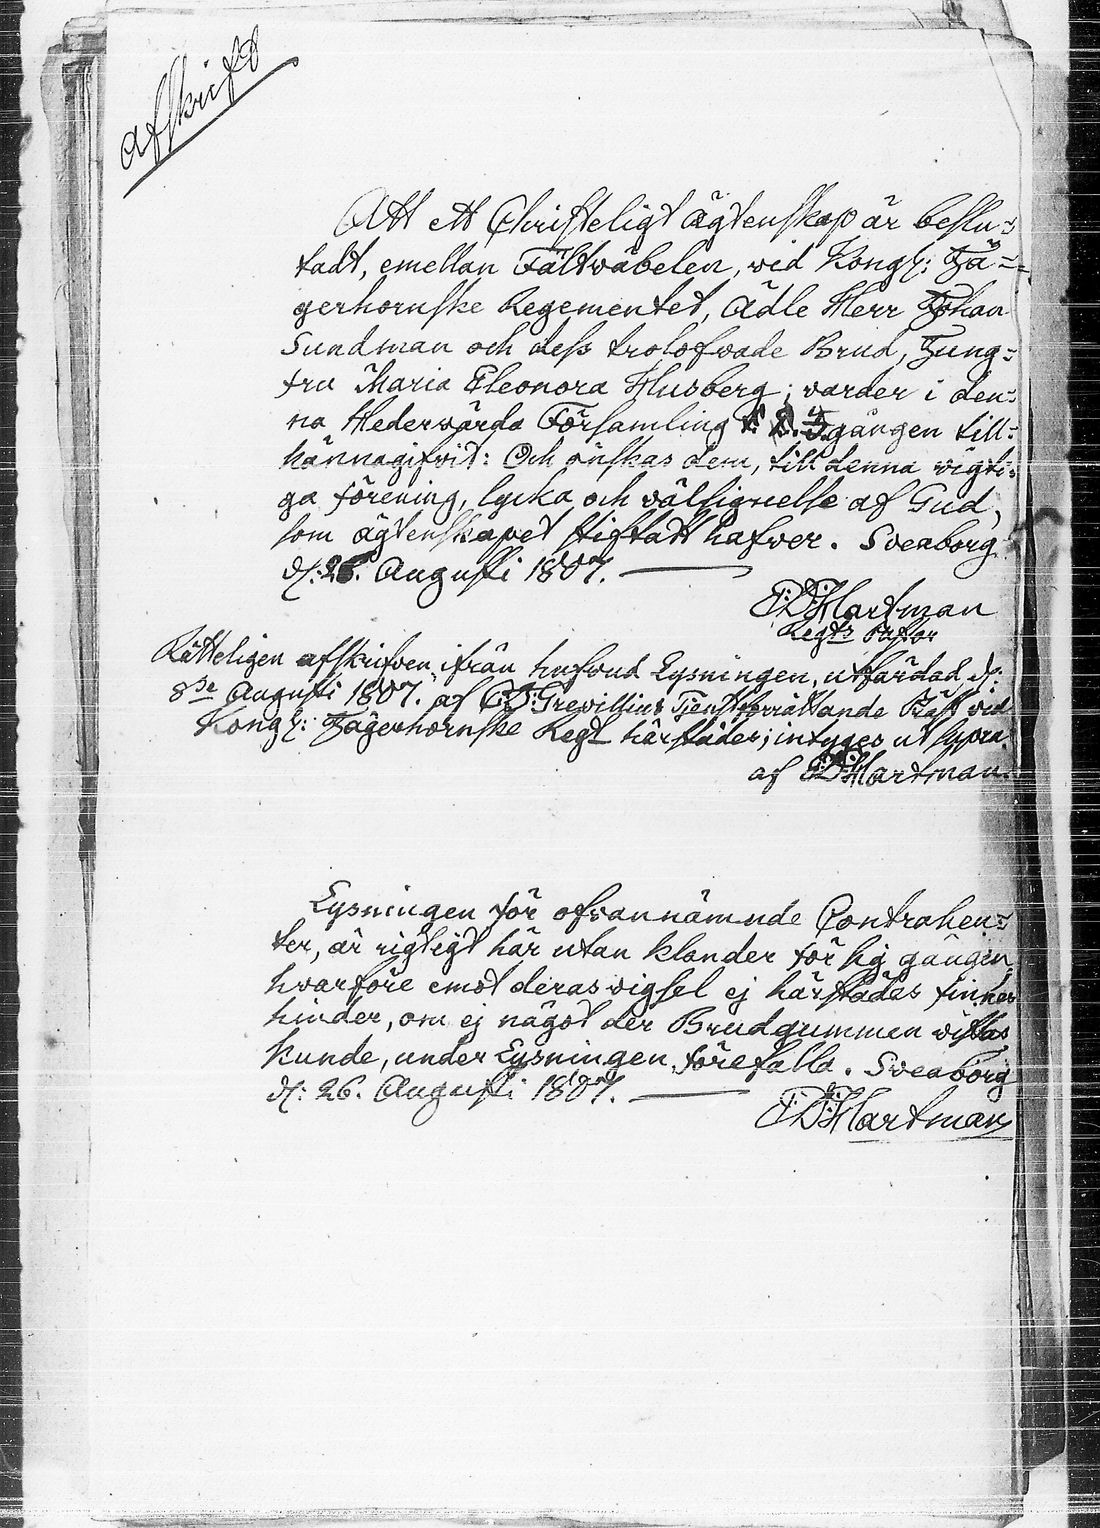 afskrift
Att ett Christeligt Ägtenskap är beslu=
tadt, emellan Fältväbelen, vid Kongl: Jä=
gerhornske Regementet, Ädle Herr Johan
Sundman och dess trolofvade Brud, Jung=
fru Maria Eleonora Husberg; varder i den=
na Hedervärda Församling 1. 2. 3 gången till=
kännagifvit: Och önskas dem, till denna vigti=
ga förening, lycka och välsignelse af Gud,
som ägtenskapet stiftatt hafver. Sveaborg
d: 26. Augusti 1807.
Hartman
Regts Pastor
Rätteligen afskrifven ifrån hufvud Lysningen, utfärdad d:
8de Augusti 1807. af Grevillius Tjenstförrättande Präst vid
Kongl: Jägerhornske Regt härstädes; intyges ut supra.
af Hartman.
Lysningen för ofvannämnde Contrahen=
ter, är rigtigt här utan klander för sig gången,
hvarföre emot deras vigsel ej härstädes finnes
hinder, om ej något der Brudgummen vistas
kunde, under Lysningen, förefalla. Sveaborg
d: 26. Augusti 1807.
Hartman